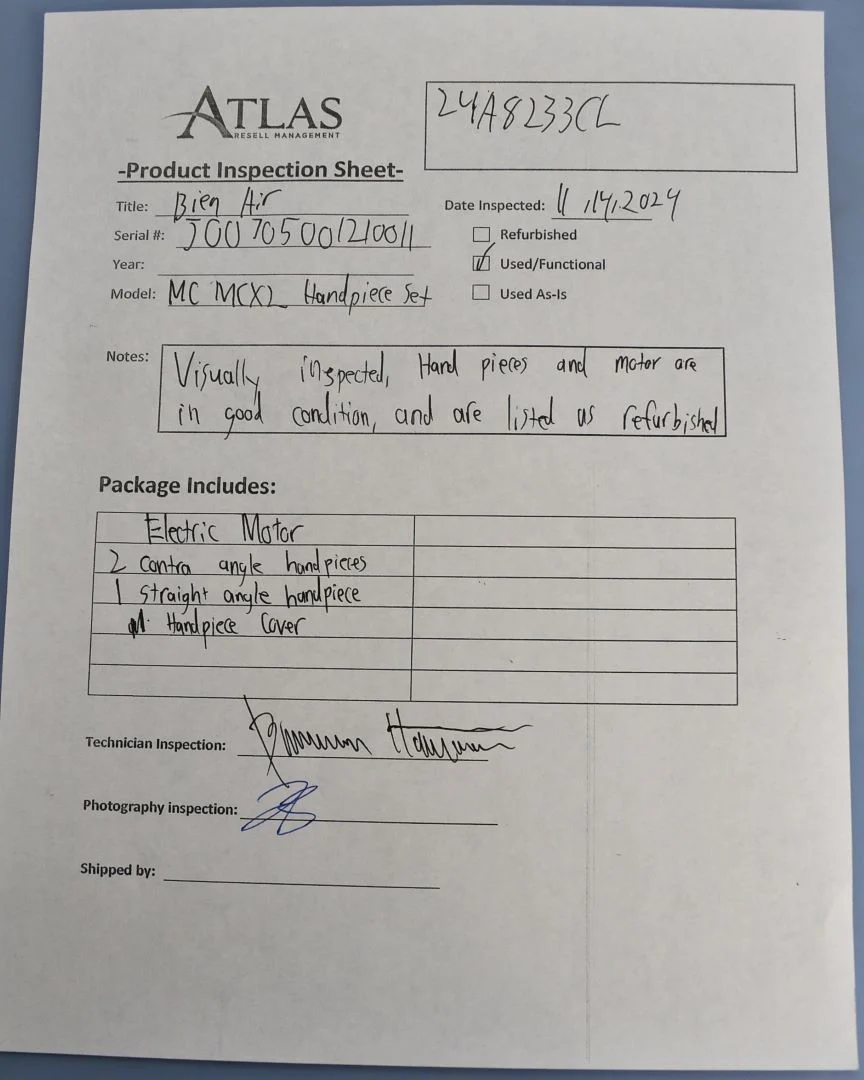 ATLAS
RESELL MANAGEMENT
24A8233CL
-Product Inspection Sheet-
Title: Bien Air
Date Inspected: 11/14/2024
Serial #: J00705001210011
Refurbished
Year:
Used/Functional
Model: MC MCX2 Handpiece Set
Used As-Is
Notes: Visually inspected, Hand pieces and motor are
in good condition, and are listed as refurbished
Package Includes:
Electric Motor
2 contra angle handpieces
1 straight angle handpiece
Handpiece Cover
Technician Inspection:
Photography inspection:
Shipped by: